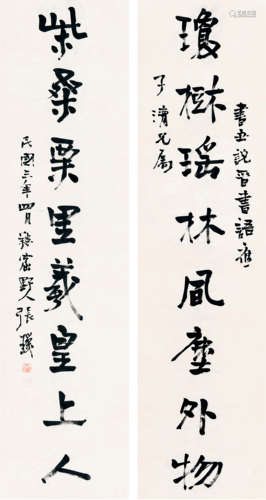 書世說晉書語應
瓊樹瑶林風塵外物
子兄屬
柴桑栗里羲皇上人
民國三年四月野人張